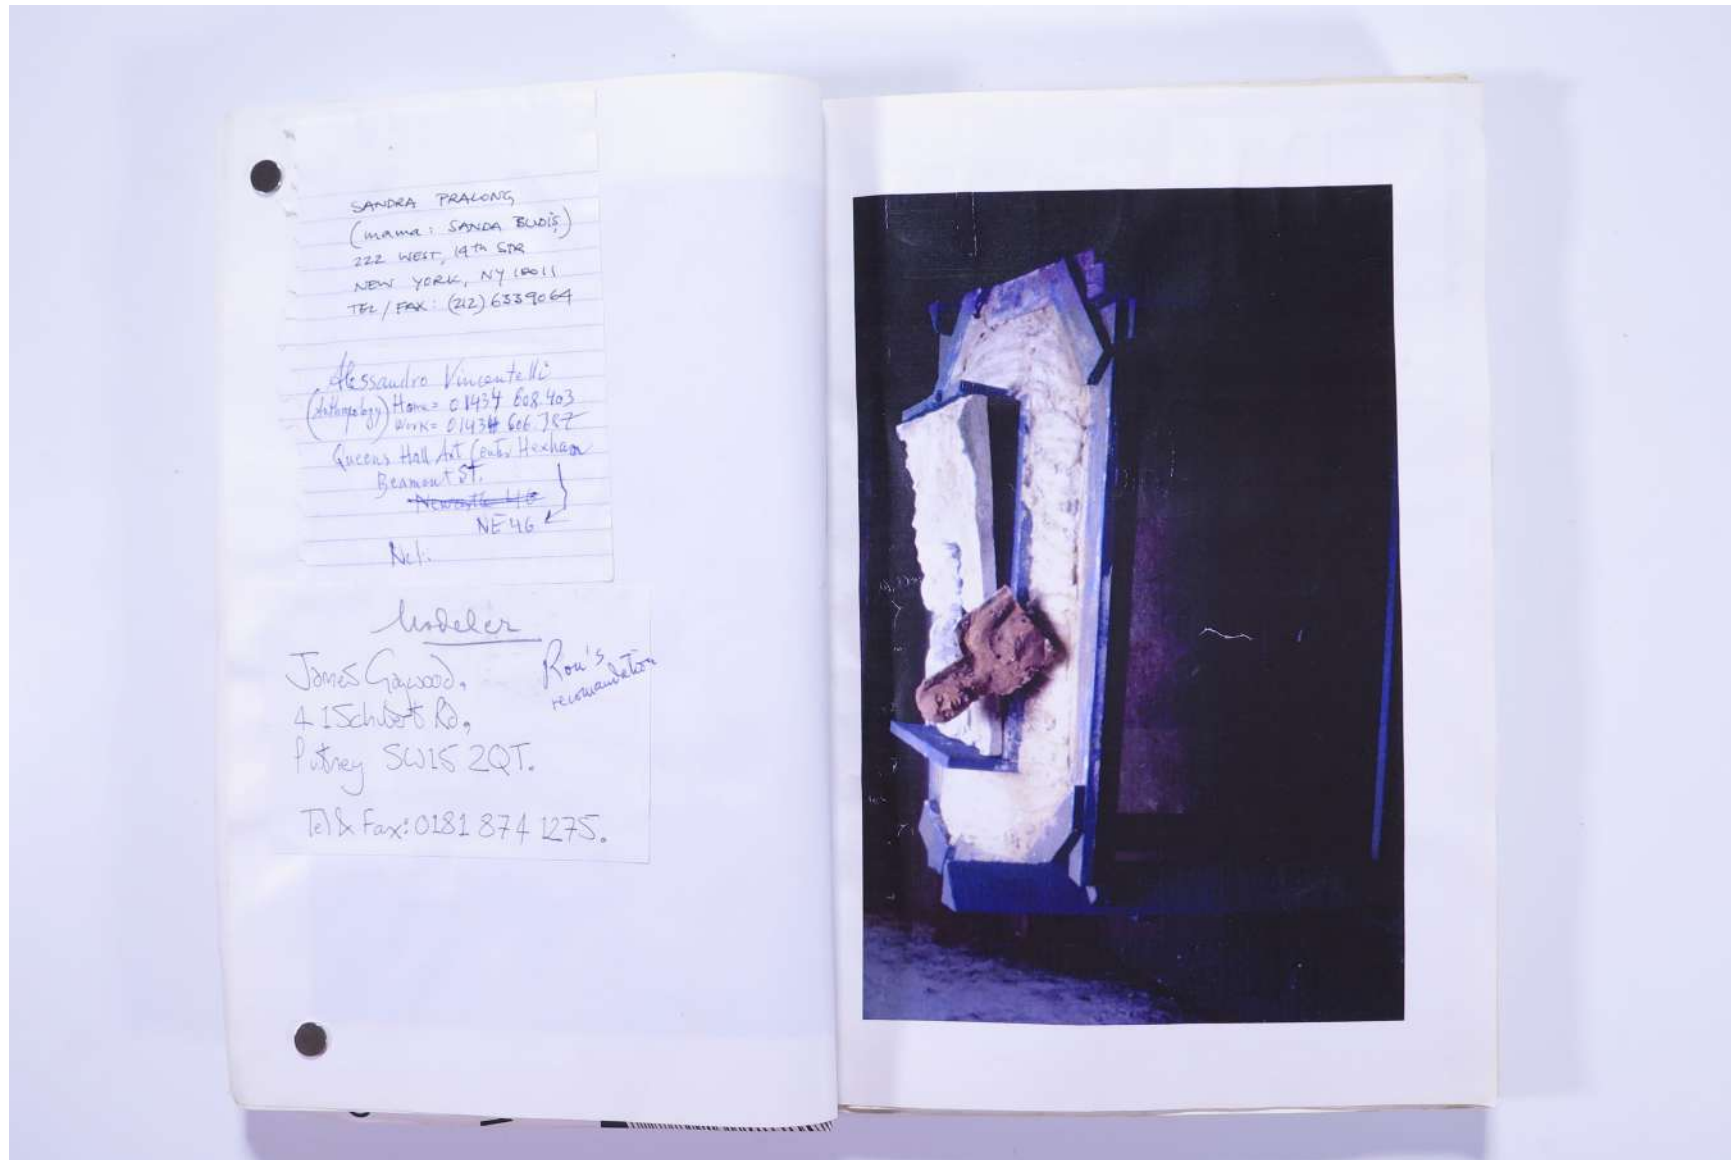 SANDRA PRALONG
(mama: SANDA BUDIȘ)
222 WEST, 19th STR
NEW YORK, NY 10011
TEL / FAX: (212) 6339064
Alessandro Vincentelli
(Anthropology) Home= 01434 608.403
Work= 01434 606.787
Queens Hall Art Center Hexham
Beamont ST.
NE 46
Modeler
James Gaywood,
Ron's
recomandation
41 Schubert Rd,
Putney SW15 2QT.
Tel & Fax: 0181 874 1275.